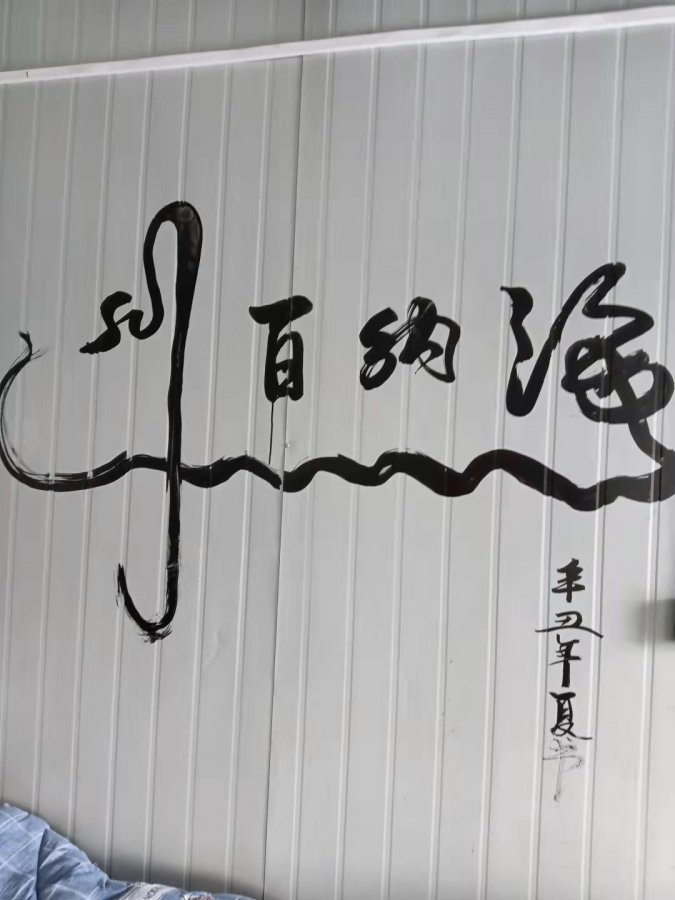 海纳百川
辛丑年夏书